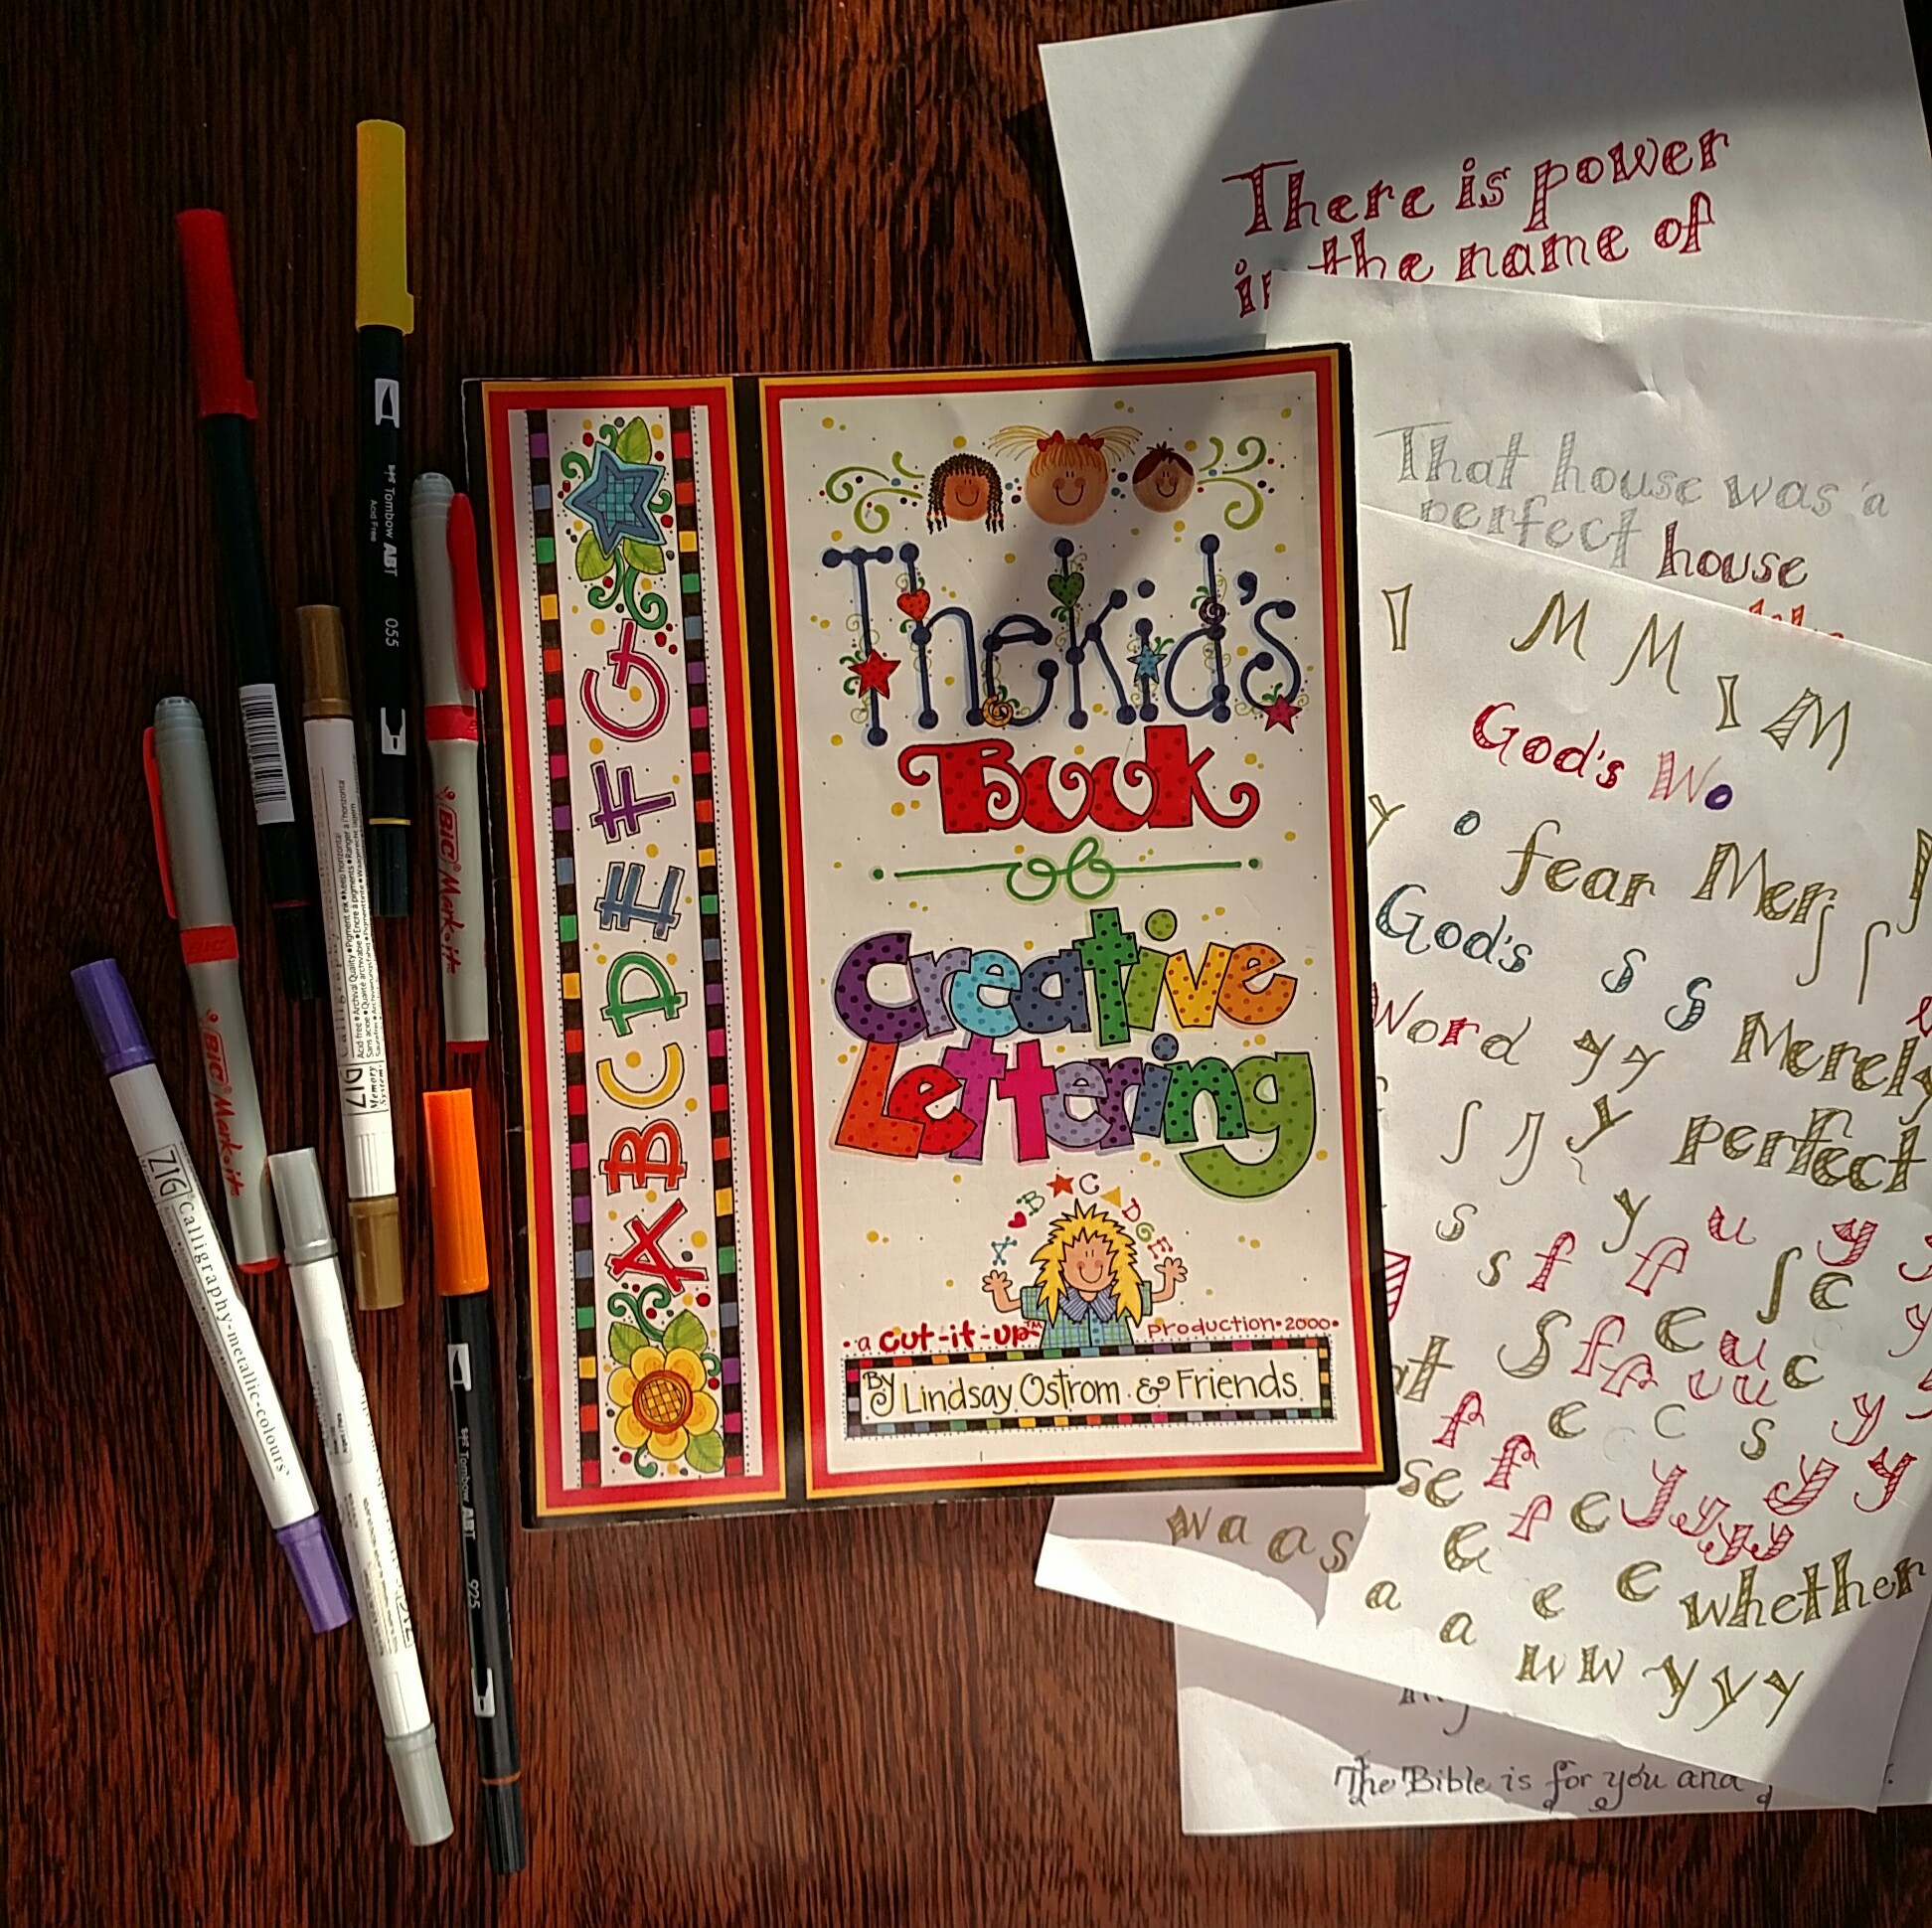 The Kid's
Book
of
Creative
Lettering
A B C D E F G
A B C D G F E
a cut-it-up™ production • 2000
By Lindsay Ostrom & Friends
Tombow ABT
Acid Free
055
BiC Mark-it
BiC Mark-it
BiC
ZIG
Memory System
Acid-free • Archival Quality • Pigment ink • Keep horizontal
ZIG Calligraphy-metallic-colours
ZIG
Tombow ABT
925
There is power
in the name of
That house was a
perfect house
I M M I M
God's Wo
y o fear Mer
God's s s
Word y y Merely
y perfect
s y u y
s f f c
f e u c
f e c s y
se f e y y y
w a a s
e e e
a a whether
w w y y y
The Bible is for you and